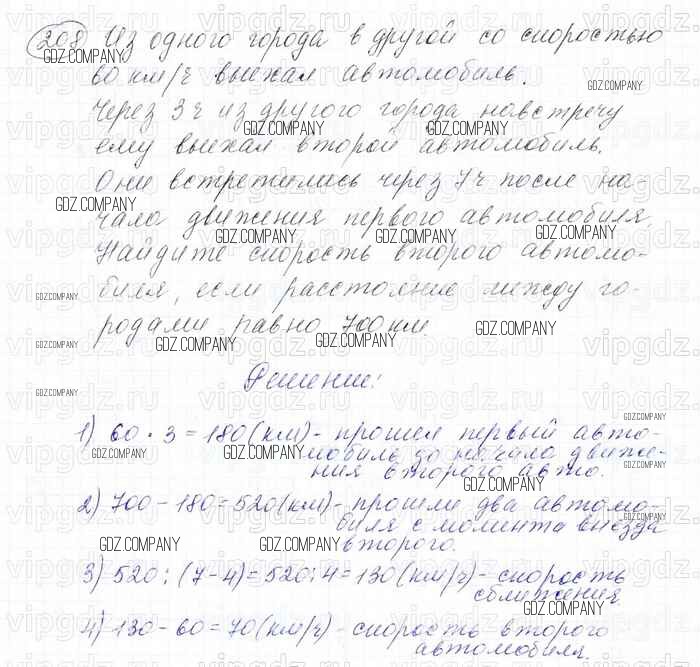 208 Из одного города в другой со скоростью
60 км/ч выехал автомобиль.
Через 3 ч из другого города навстречу
ему выехал второй автомобиль.
Они встретились через 7 ч после на-
чала движения первого автомобиля.
Найдите скорость второго автомо-
биля, если расстояние между го-
родами равно 700 км.
Решение:
1) 60 · 3 = 180 (км) - прошел первый авто-
мобиль до начала движе-
ния второго авто.
2) 700 - 180 = 520 (км) - прошли два автомо-
биля с момента выезда
второго.
3) 520 : (7-4) = 520 : 4 = 130 (км/ч) - скорость
сближения.
4) 130 - 60 = 70 (км/ч) - скорость второго
автомобиля.